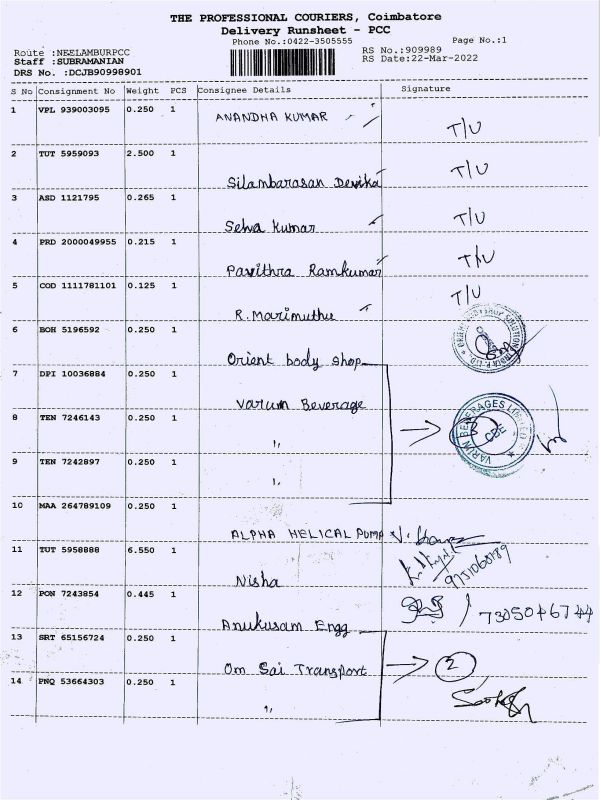 THE PROFESSIONAL COURIERS, Coimbatore
Delivery Runsheet - PCC
Phone No.:0422-3505555 Page No.:1
Route :NEELAMBURPCC RS No.:909989
Staff :SUBRAMANIAN RS Date:22-Mar-2022
DRS No. :DCJB90998901
S No Consignment No Weight PCS Consignee Details Signature
1 VPL 939003095 0.250 1 ANANDHA KUMAR T/U
2 TUT 5959093 2.500 1 Silambarasan Devika T/U
3 ASD 1121795 0.265 1 Selva Kumar T/U
4 PRD 2000049955 0.215 1 Pavithra Ramkumar T/U
5 COD 1111781101 0.125 1 R. Marimuthu T/U
6 BOH 5196592 0.250 1 Orient body shop
7 DPI 10036884 0.250 1 Varum Beverage
8 TEN 7246143 0.250 1 " 3 VARUN BEVERAGES LIMITED CBE
9 TEN 7242897 0.250 1 "
10 MAA 264789109 0.250 1 ALPHA HELICAL PUMP
11 TUT 5958888 6.550 1 Nisha
12 PON 7243854 0.445 1 Anukusam Engg 7305046744
13 SRT 65156724 0.250 1 Om Sai Transport 2
14 PNQ 53664303 0.250 1 "